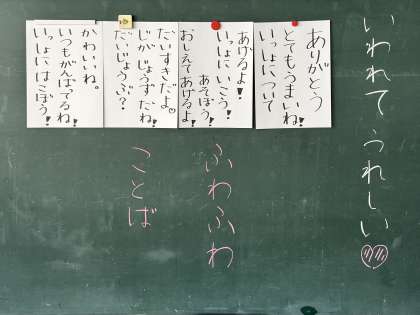 いわれて うれしい
ふわふわ
ことば
ありがとう
とてもうまいね!
いっしょについて
あげるよ!
いっしょにいこう!
あそぼう!
おしえてあげるよ!
だいすきだよ。
じがじょうずだね!
だいじょうぶ?
かわいいね。
いつもがんばってるね!
いっしょにはこぼう!